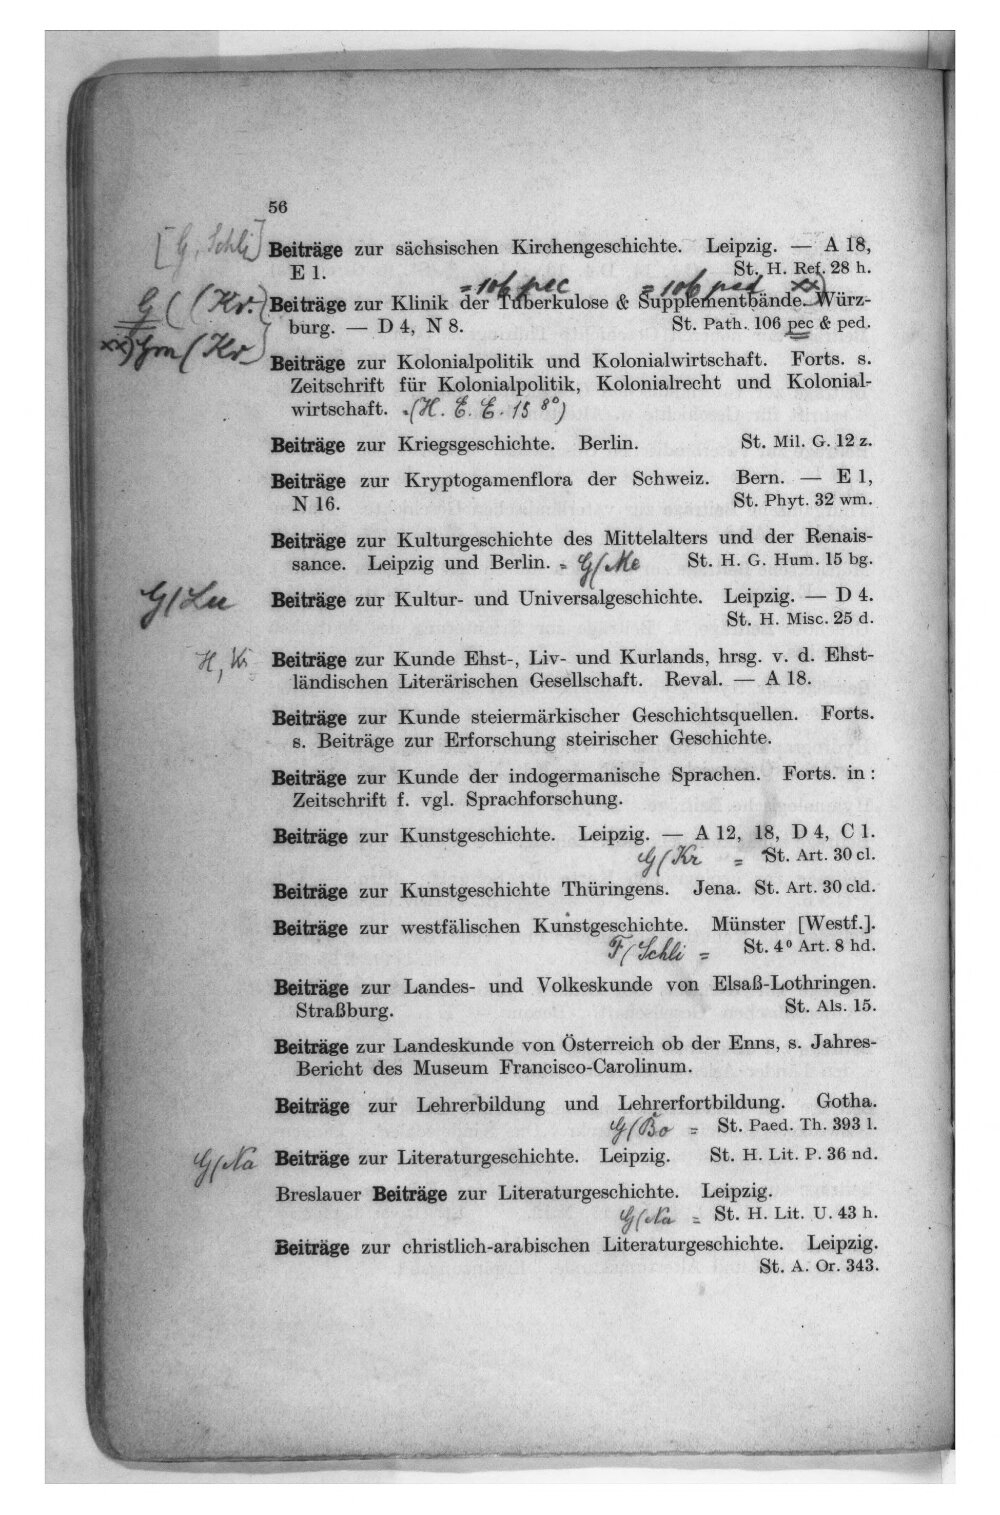 56
[G, Schli] Beiträge zur sächsischen Kirchengeschichte. Leipzig. — A 18,
E 1. St. H. Ref. 28 h.
= 106 pec = 106 ped xx)
G ( (Kr.) Beiträge zur Klinik der Tuberkulose & Supplementbände. Würz-
burg. — D 4, N 8. St. Path. 106 pec & ped.
xx) Gm (Kr
Beiträge zur Kolonialpolitik und Kolonialwirtschaft. Forts. s.
Zeitschrift für Kolonialpolitik, Kolonialrecht und Kolonial-
wirtschaft. (H. E. E. 15 8°)
Beiträge zur Kriegsgeschichte. Berlin. St. Mil. G. 12 z.
Beiträge zur Kryptogamenflora der Schweiz. Bern. — E 1,
N 16. St. Phyt. 32 wm.
Beiträge zur Kulturgeschichte des Mittelalters und der Renais-
sance. Leipzig und Berlin. = G/Me St. H. G. Hum. 15 bg.
G/Lu Beiträge zur Kultur- und Universalgeschichte. Leipzig. — D 4.
St. H. Misc. 25 d.
H, Ki Beiträge zur Kunde Ehst-, Liv- und Kurlands, hrsg. v. d. Ehst-
ländischen Literärischen Gesellschaft. Reval. — A 18.
Beiträge zur Kunde steiermärkischer Geschichtsquellen. Forts.
s. Beiträge zur Erforschung steirischer Geschichte.
Beiträge zur Kunde der indogermanische Sprachen. Forts. in :
Zeitschrift f. vgl. Sprachforschung.
Beiträge zur Kunstgeschichte. Leipzig. — A 12, 18, D 4, C 1.
G/Kr = St. Art. 30 cl.
Beiträge zur Kunstgeschichte Thüringens. Jena. St. Art. 30 cld.
Beiträge zur westfälischen Kunstgeschichte. Münster [Westf.].
F/Schli = St. 4⁰ Art. 8 hd.
Beiträge zur Landes- und Volkeskunde von Elsaß-Lothringen.
Straßburg. St. Als. 15.
Beiträge zur Landeskunde von Österreich ob der Enns, s. Jahres-
Bericht des Museum Francisco-Carolinum.
Beiträge zur Lehrerbildung und Lehrerfortbildung. Gotha.
G/Bo = St. Paed. Th. 393 l.
G/Na Beiträge zur Literaturgeschichte. Leipzig. St. H. Lit. P. 36 nd.
Breslauer Beiträge zur Literaturgeschichte. Leipzig.
G/Na = St. H. Lit. U. 43 h.
Beiträge zur christlich-arabischen Literaturgeschichte. Leipzig.
St. A. Or. 343.